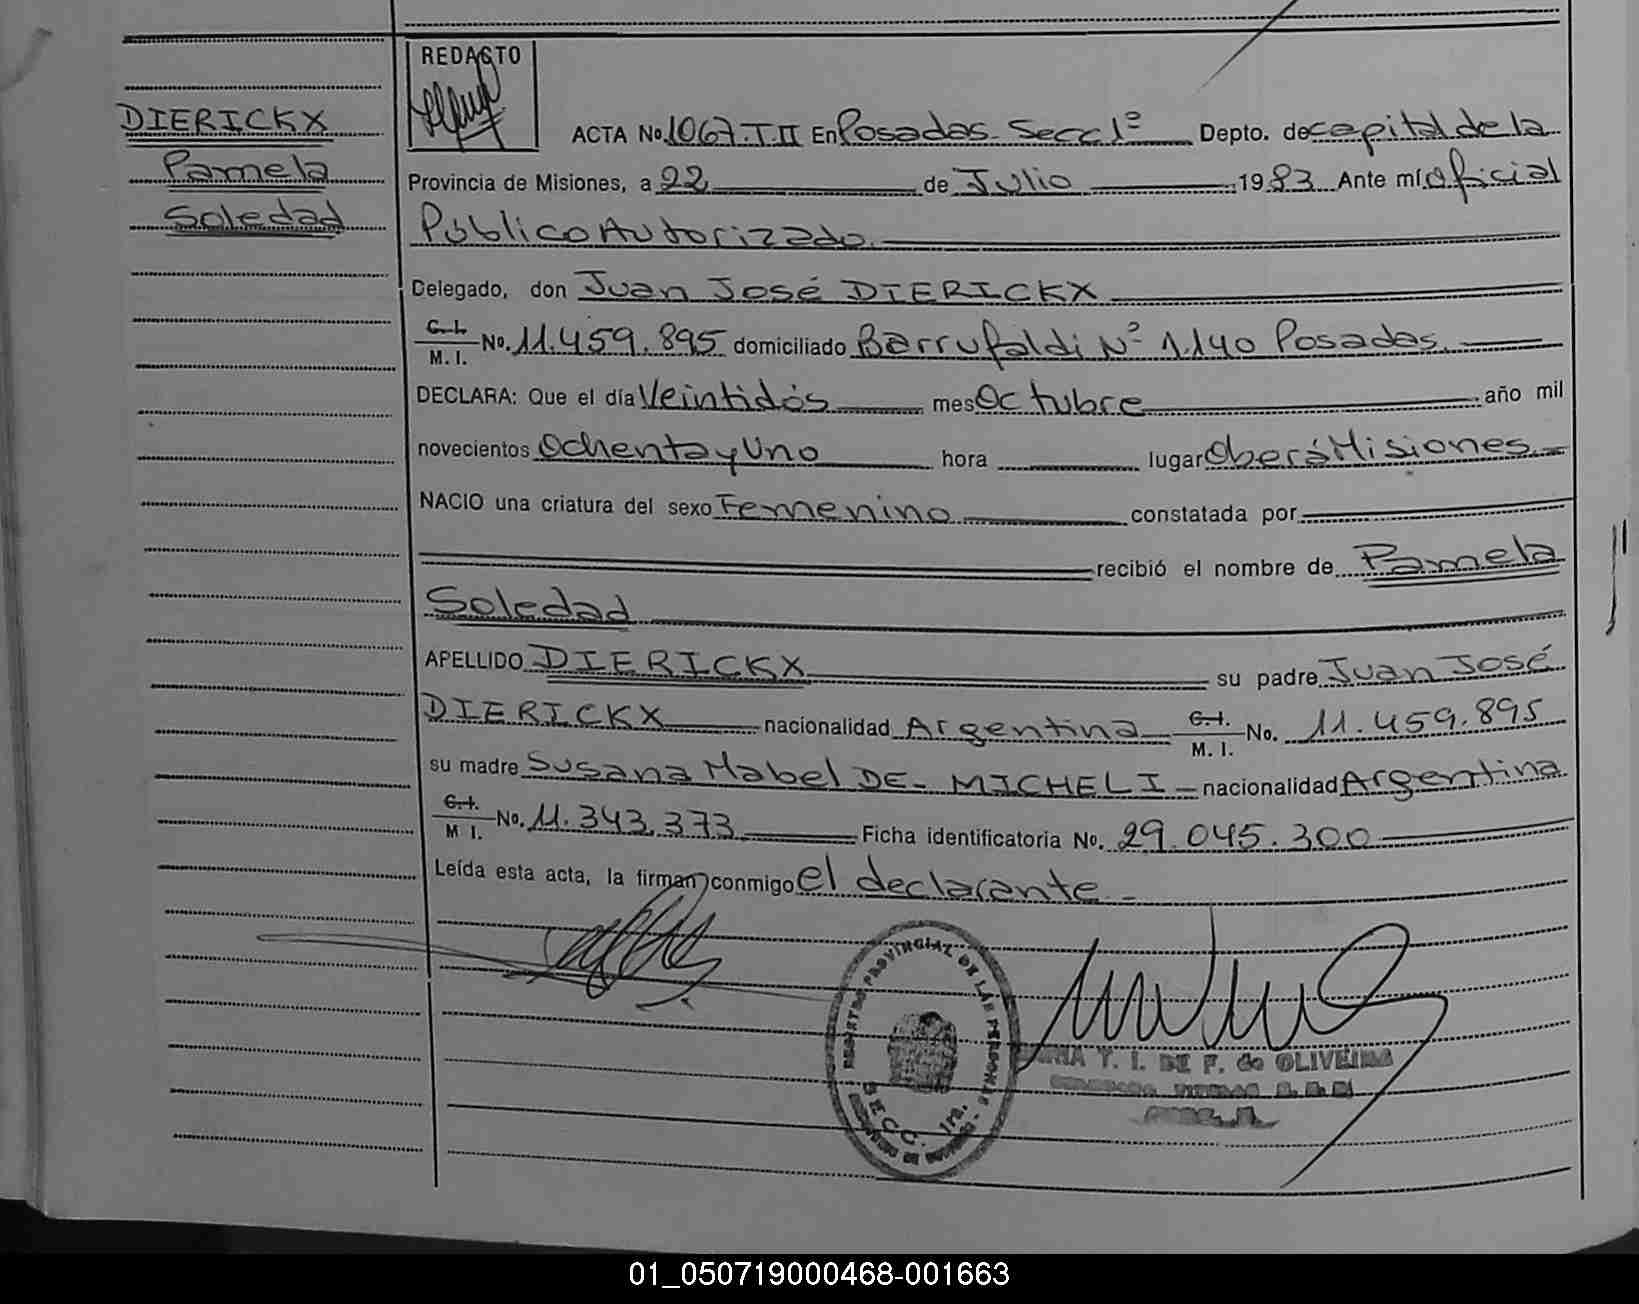 REDACTO
DIERICKX
Pamela
Soledad
ACTA No. 1067.T.II En Posadas Secc 1º Depto. de capital de la
Provincia de Misiones, a 22 de Julio 1983 Ante mí oficial
Público Autorizado.
Delegado, don Juan José DIERICKX
C. I.
M. I. No. 11.459.895 domiciliado Barrufaldi Nº 1.140 Posadas.
DECLARA: Que el día Veintidós mes Octubre año mil
novecientos Ochenta y Uno hora lugar Oberá Misiones.
NACIO una criatura del sexo Femenino constatada por
recibió el nombre de Pamela
Soledad
APELLIDO DIERICKX su padre Juan José
DIERICKX nacionalidad Argentina C. I. M. I. No. 11.459.895
su madre Susana Mabel DE- MICHELI - nacionalidad Argentina
C. I.
M I. No. 11.343.373 Ficha identificatoria No. 29.045.300
Leída esta acta, la firman conmigo el declarante -
REGISTRO PROVINCIAL DE LAS PERSONAS
SECC. 1ra.
Y. I. DE F. de OLIVEIRA
01_050719000468-001663